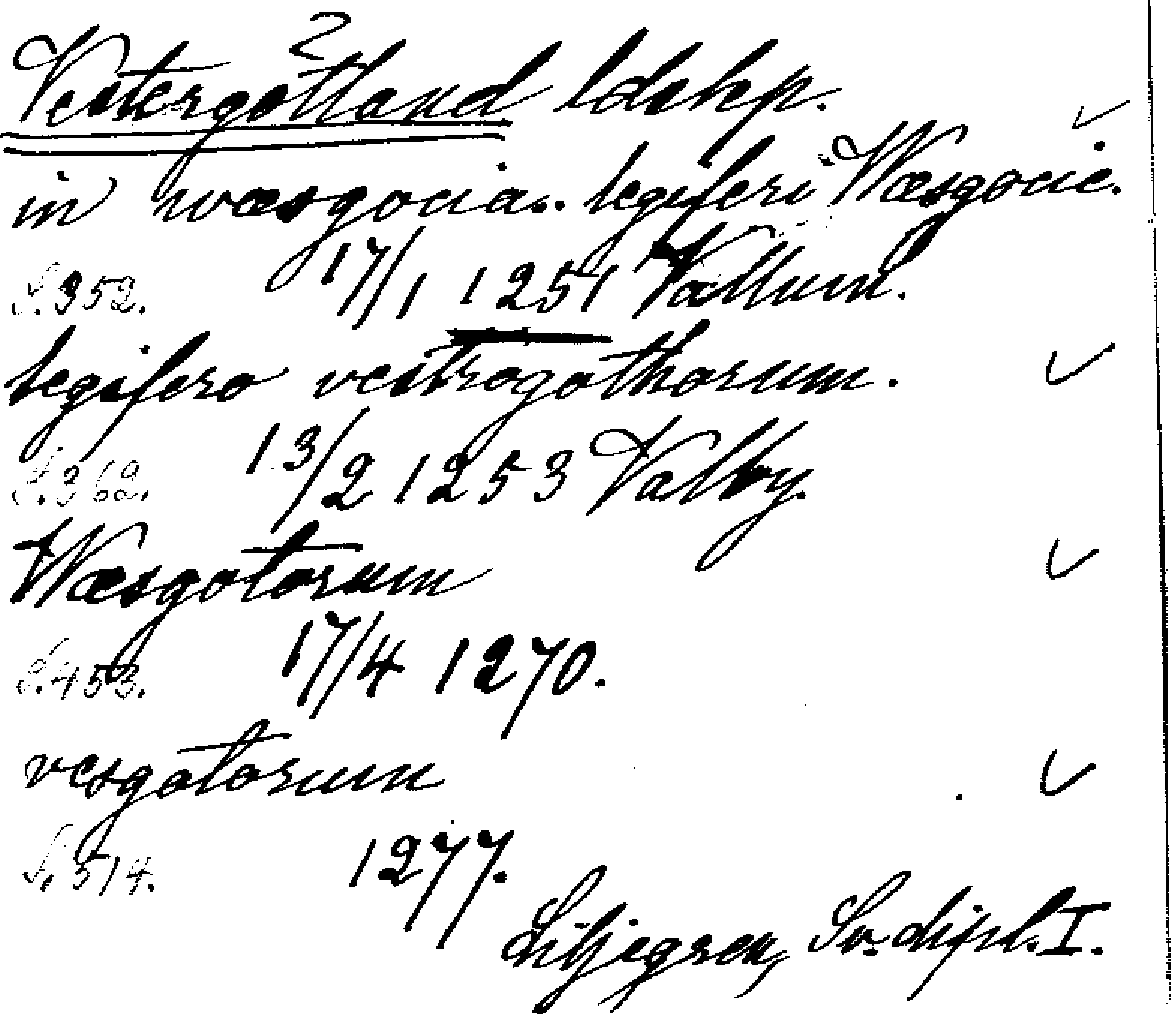 2
Vestergötland ldskp.
in wæsgocia. legiferi Wæsgocie.
S. 352. 17/1 1251 Vallum.
legifero vestrogothorum.
S. 362. 13/2 1253 Valby.
Wæsgotorum
S. 453. 17/4 1270.
vesgotorum
S. 514. 1277.
Liljegren, Sv. dipl. I.